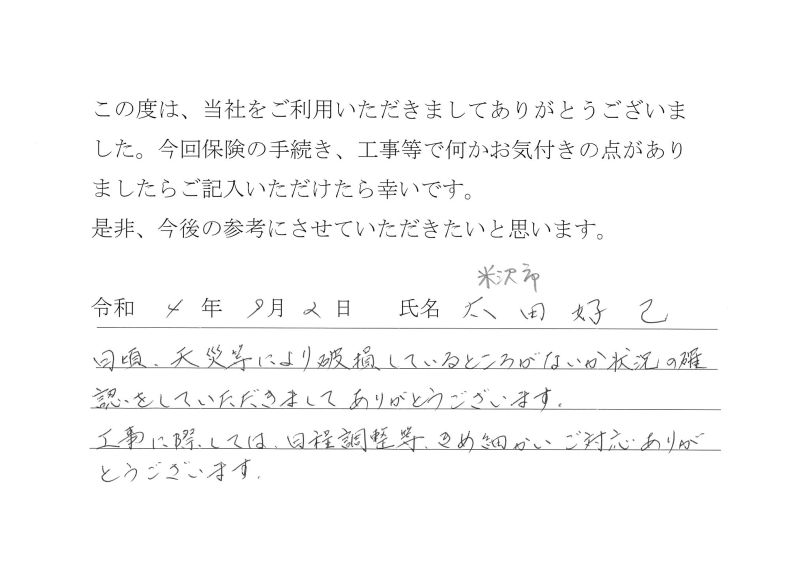 この度は、当社をご利用いただきましてありがとうございま
した。今回保険の手続き、工事等で何かお気付きの点があり
ましたらご記入いただけたら幸いです。
是非、今後の参考にさせていただきたいと思います。
米沢市
令和 4 年 9月 2 日 氏名 太田好己
日頃、天災等により破損しているところがないか状況の確
認をしていただきまして ありがとうございます。
工事に際しては、日程調整等、きめ細かい ご対応 ありが
とうございます。